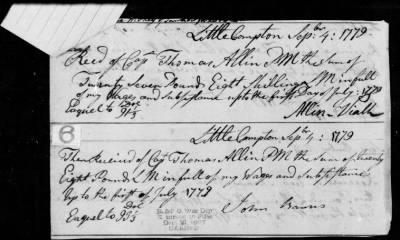 Little Compton Sepbr 4: 1779
Recd of Capt Thomas Allin PM the Sum of
Twenty Seven Pound Eight Shillings LM infull
of my Wages and Subsistance upto the first Day of July: 1779
Equel to
Allin Viall
Little Compton Sepbr 4: 1779
Then Received of Capt Thomas Allin PM the Sum of twenty
Eight Pound LM infull of my Wages and Subsistance
Up to the first of July 1779
Equel to
John